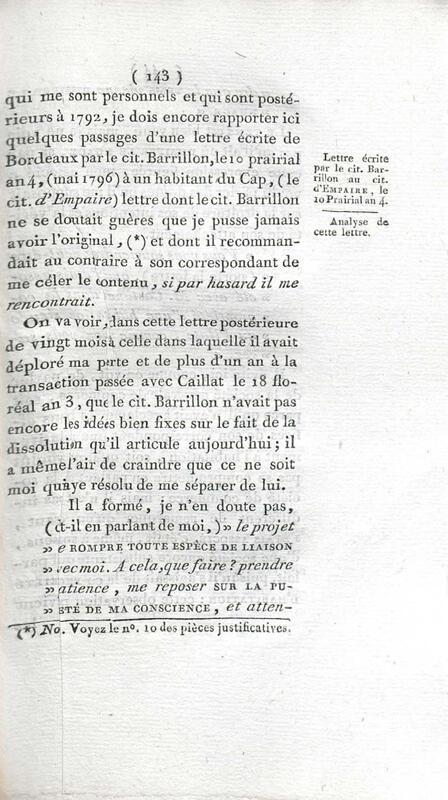 ( 143 )
qui me sont personnels et qui sont posté-
rieurs à 1792, je dois encore rapporter ici
quelques passages d'une lettre écrite de
Bordeaux par le cit. Barrillon, le 10 prairial
an 4, (mai 1796) à un habitant du Cap, (le
cit. d'Empaire) lettre dont le cit. Barrillon
ne se doutait guères que je pusse jamais
avoir l'original, (*) et dont il recomman-
dait au contraire à son correspondant de
me céler le contenu, si par hasard il me
rencontrait.
On va voir, dans cette lettre postérieure
de vingt mois à celle dans laquelle il avait
déploré ma perte et de plus d'un an à la
transaction passée avec Caillat le 18 flo-
réal an 3, que le cit. Barrillon n'avait pas
encore les idées bien fixes sur le fait de la
dissolution qu'il articule aujourd'hui; il
a même l'air de craindre que ce ne soit
moi qui aye résolu de me séparer de lui.
Il a formé, je n'en doute pas,
(dit-il en parlant de moi,) » le projet
» e ROMPRE TOUTE ESPÈCE DE LIAISON
» vec moi. A cela, que faire? prendre
» atience, me reposer SUR LA PU-
» ETÉ DE MA CONSCIENCE, et atten-
(*) No. Voyez le nº. 10 des pièces justificatives.
Lettre écrite
par le cit. Bar-
rillon au cit.
d'EMPAIRE, le
10 Prairial an 4.
Analyse de
cette lettre.